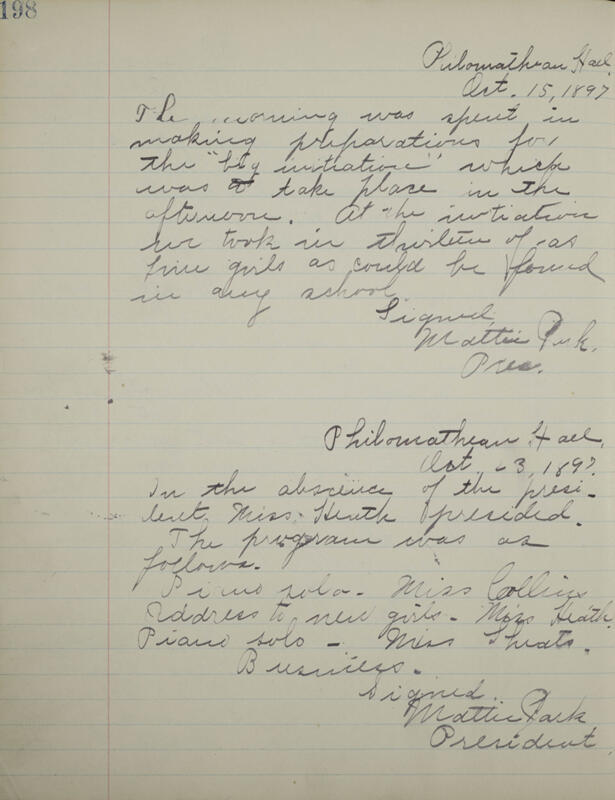 198
Philomathean Hall.
Oct. 15, 1897
The morning was spent in
making preparations for
the "big initiation" which
was to take place in the
afternoon. At the initiation
we took in thirteen of as
fine girls as could be found
in any school.
Signed,
Mattie Park,
Pres.
Philomathean Hall,
Oct. 23, 1897
In the abscence of the presi-
dent, Miss Heath presided.
The program was as
follows.
Piano solo - Miss Collins
Address to new girls - Miss Heath.
Piano solo - Miss Sheats.
Business.
Signed.
Mattie Park
President.